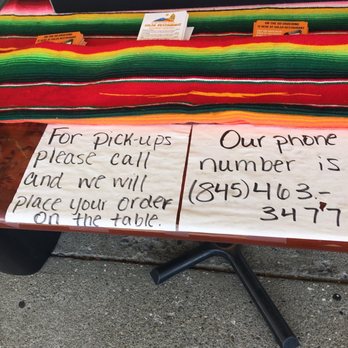 For pick-ups
please call
and we will
place your order
on the table.
Our phone
number is
(845)463-
3477